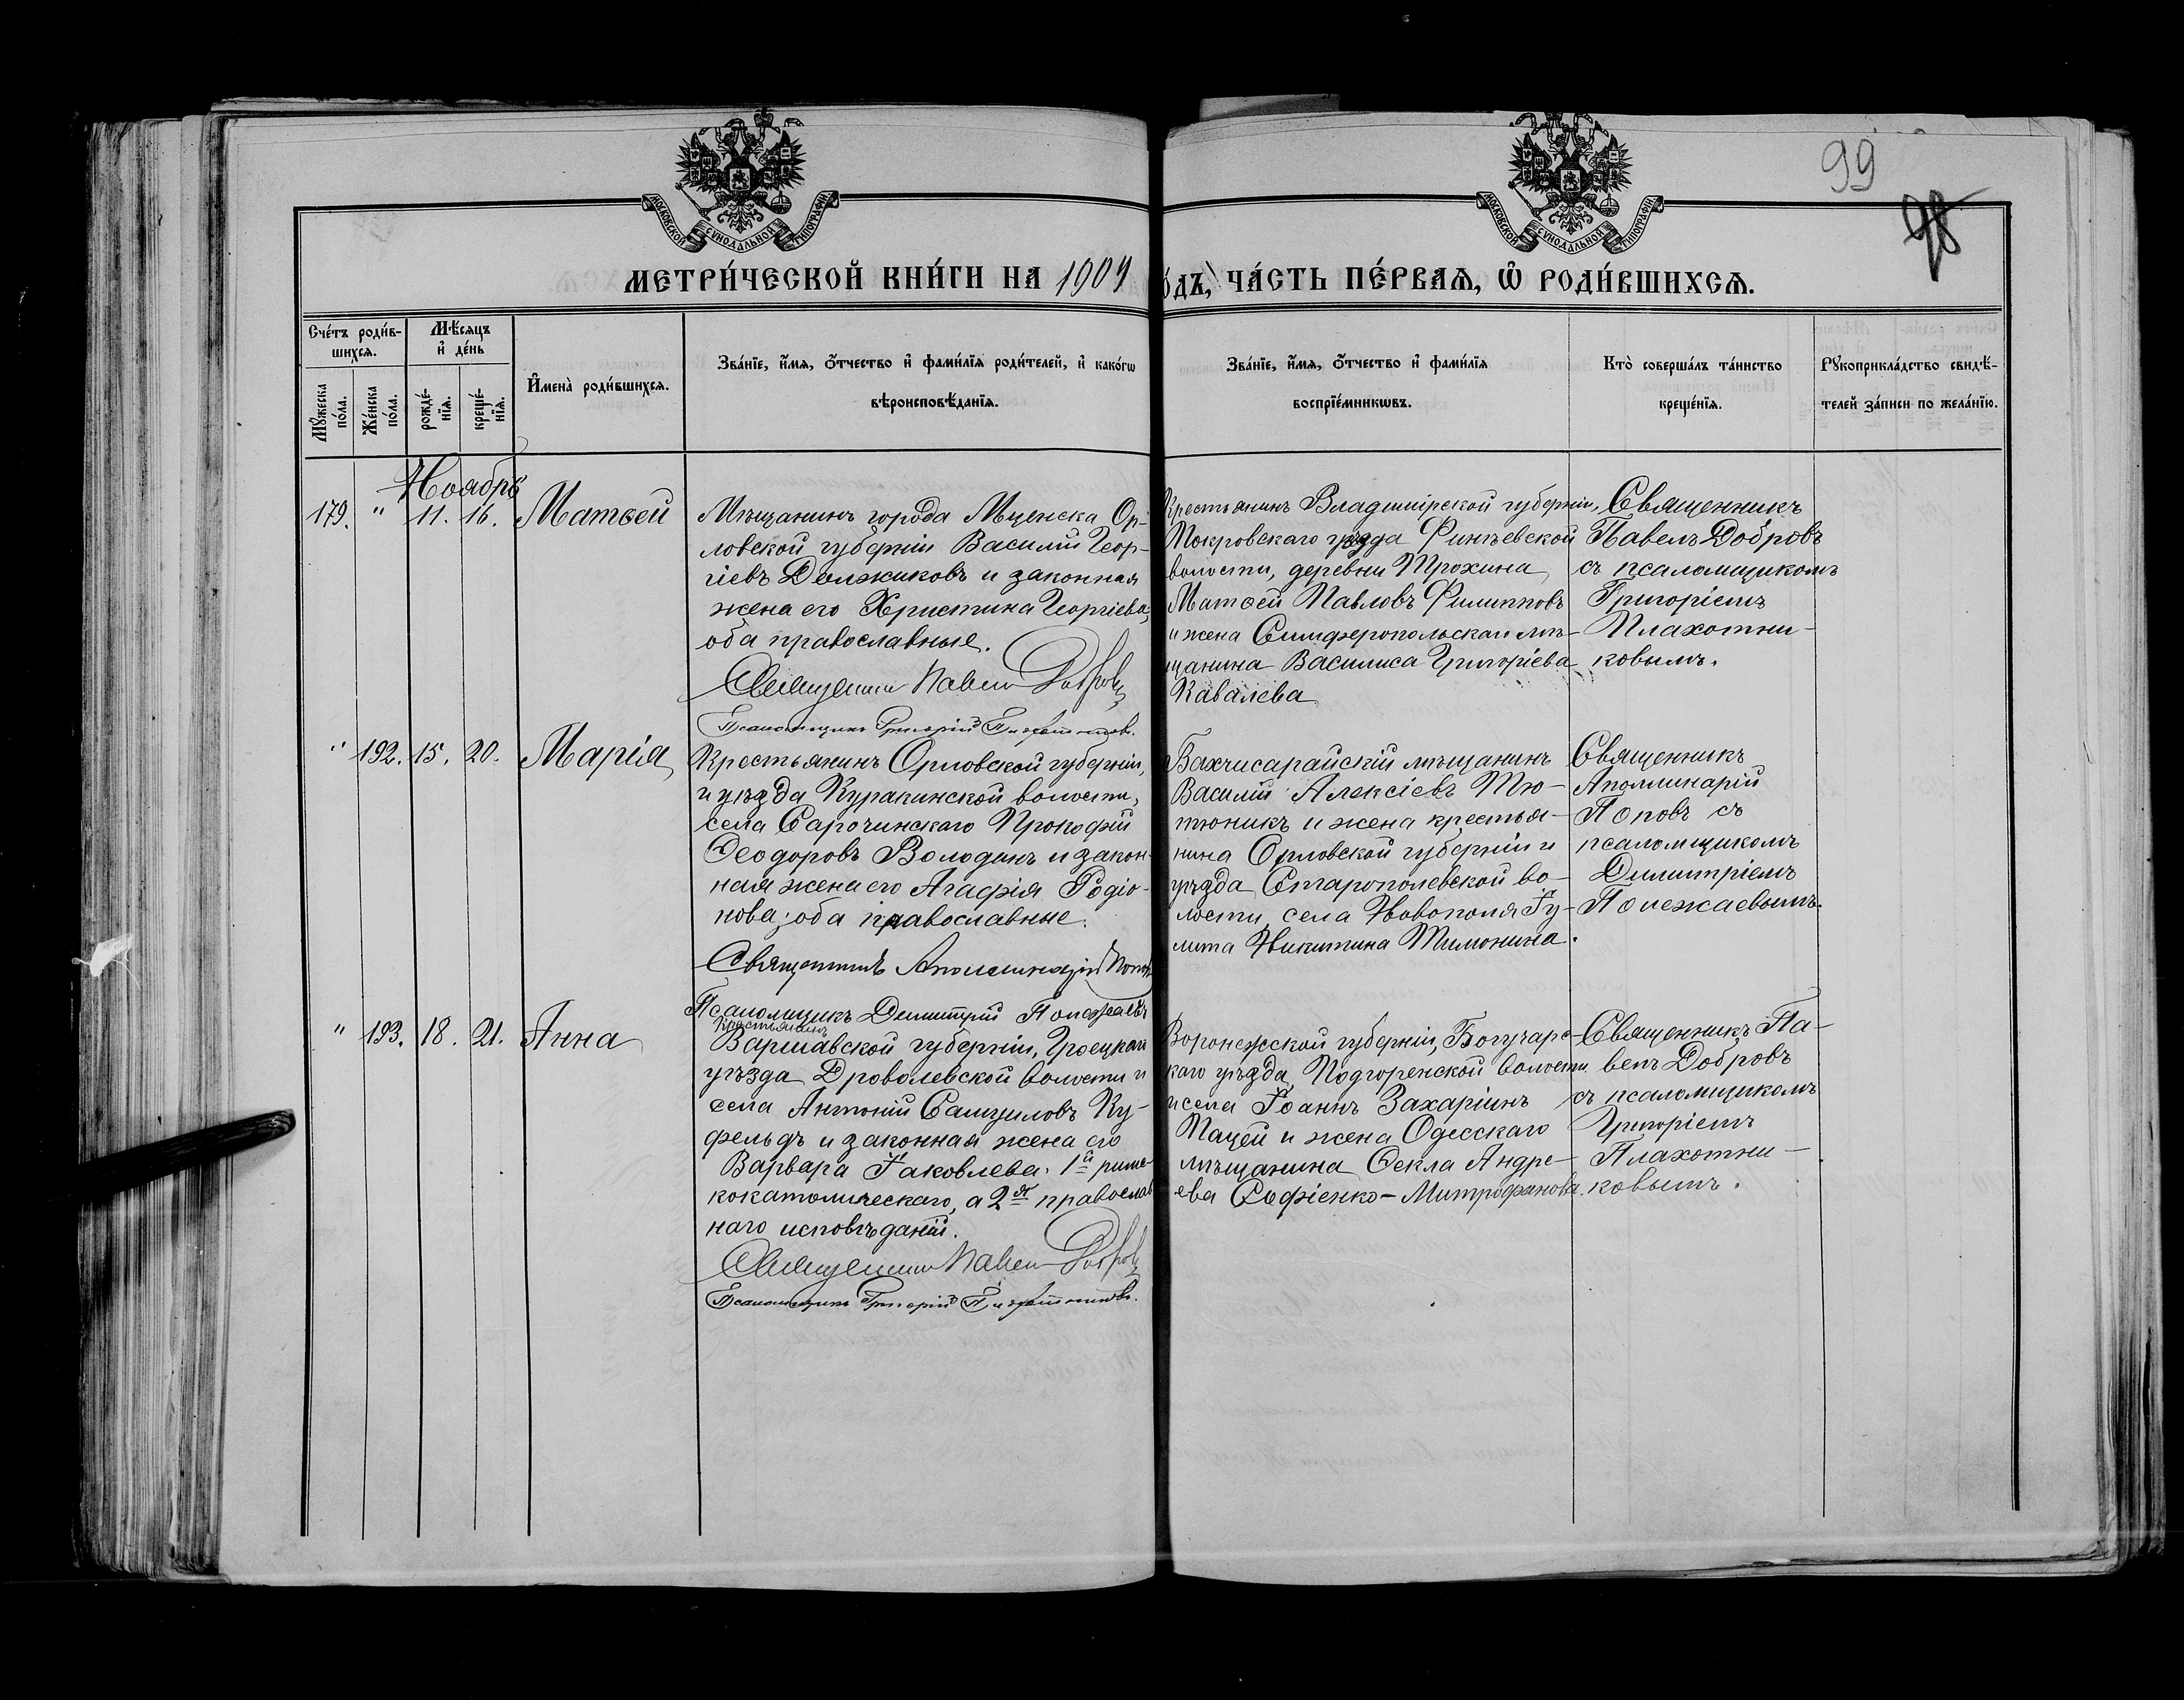 МОСКОВСКОЙ СѴНОДАЛЬНОЙ ТИПОГРАФІИ
МОСКОВСКОЙ СѴНОДАЛЬНОЙ ТИПОГРАФІИ
99
98
МЕТРИ́ЧЕСКОЙ КНИ́ГИ НА 1904
о́дъ, ЧА́СТЬ ПЕ́РВАѦ, Ѡ҆ РОДИ́ВШИХСѦ.
Сче́тъ роди́в-
шихсѧ.
Мꙋ́жеска по́ла.
Же́нска по́ла.
Мѣ́сѧцъ
и҆ де́нь
рожде́-
нїѧ.
креще́-
нїѧ.
И҆мена̀ роди́вшихсѧ.
Зва́нїе, и҆́мѧ, ѻ҆́тчество и҆ фами́лїѧ роди́телей, и҆ како́гѡ
вѣроисповѣ́данїѧ.
Зва́нїе, и҆́мѧ, ѻ҆́тчество и҆ фами́лїѧ
воспрїе́мникѡвъ.
Кто̀ соверша́лъ та́инство
креще́нїѧ.
Рꙋкоприкла́дство свидѣ́-
телей за́писи по жела́нїю.
Ноябрь
179. " 11. 16. Матѳей
Мѣщанинъ города Мценска Ор-
ловской губерніи Василій Геор-
гіевъ Должиковъ и законная
жена его Христина Георгіева,
оба православные.
Священникъ Павелъ Добровъ
Псаломщикъ Григорій Плахотниковъ.
Крестьянинъ Владимірской губерніи,
Покровскаго уѣзда Финѣевской
волости, деревни Трохина
Матѳей Павловъ Филипповъ
и жена Симферопольскаго мѣ-
щанина Василиса Григоріева
Кавалева
Священникъ
Павелъ Добровъ
съ псаломщикомъ
Григоріемъ
Плахотни-
ковымъ.
" 192. 15. 20. Марія
Крестьянинъ Орловской губерніи,
и уѣзда Куракинской волости,
села Сарочинскаго Прокофій
Ѳеодоровъ Володинъ и закон-
ная жена его Агафія Родіо-
нова; оба православные.
Священникъ Аполлинарій Поповъ
Псаломщикъ Димитрій Полежаевъ
Бахчисарайскій мѣщанинъ
Василій Алексіевъ Тю-
тюникъ и жена крестья-
нина Орловской губерніи и
уѣзда Старополевской во-
лости, села Новополя Іу-
лита Никитина Тимонина.
Священникъ
Аполлинарій
Поповъ съ
псаломщикомъ
Димитріемъ
Полежаевымъ.
" 193. 18. 21. Анна
Крестьянинъ
Варшавской губерніи, Гроецкаго
уѣзда Дроволевской волости и
села Антоній Самуиловъ Ку-
фельдъ и законная жена его
Варвара Іаковлева. 1й римс-
кокатолическаго, а 2я православ
наго исповѣданій.
Священникъ Павелъ Добровъ
Псаломщикъ Григорій Плахотниковъ.
Воронежской губерніи, Богучарс-
каго уѣзда, Подгоренской волости
и села Іоаннъ Захаріинъ
Пацей и жена Одесскаго
мѣщанина Ѳекла Андре-
ева Софіенко-Митрофанова.
Священникъ Па-
велъ Добровъ
съ псаломщикомъ
Григоріемъ
Плахотни-
ковымъ.